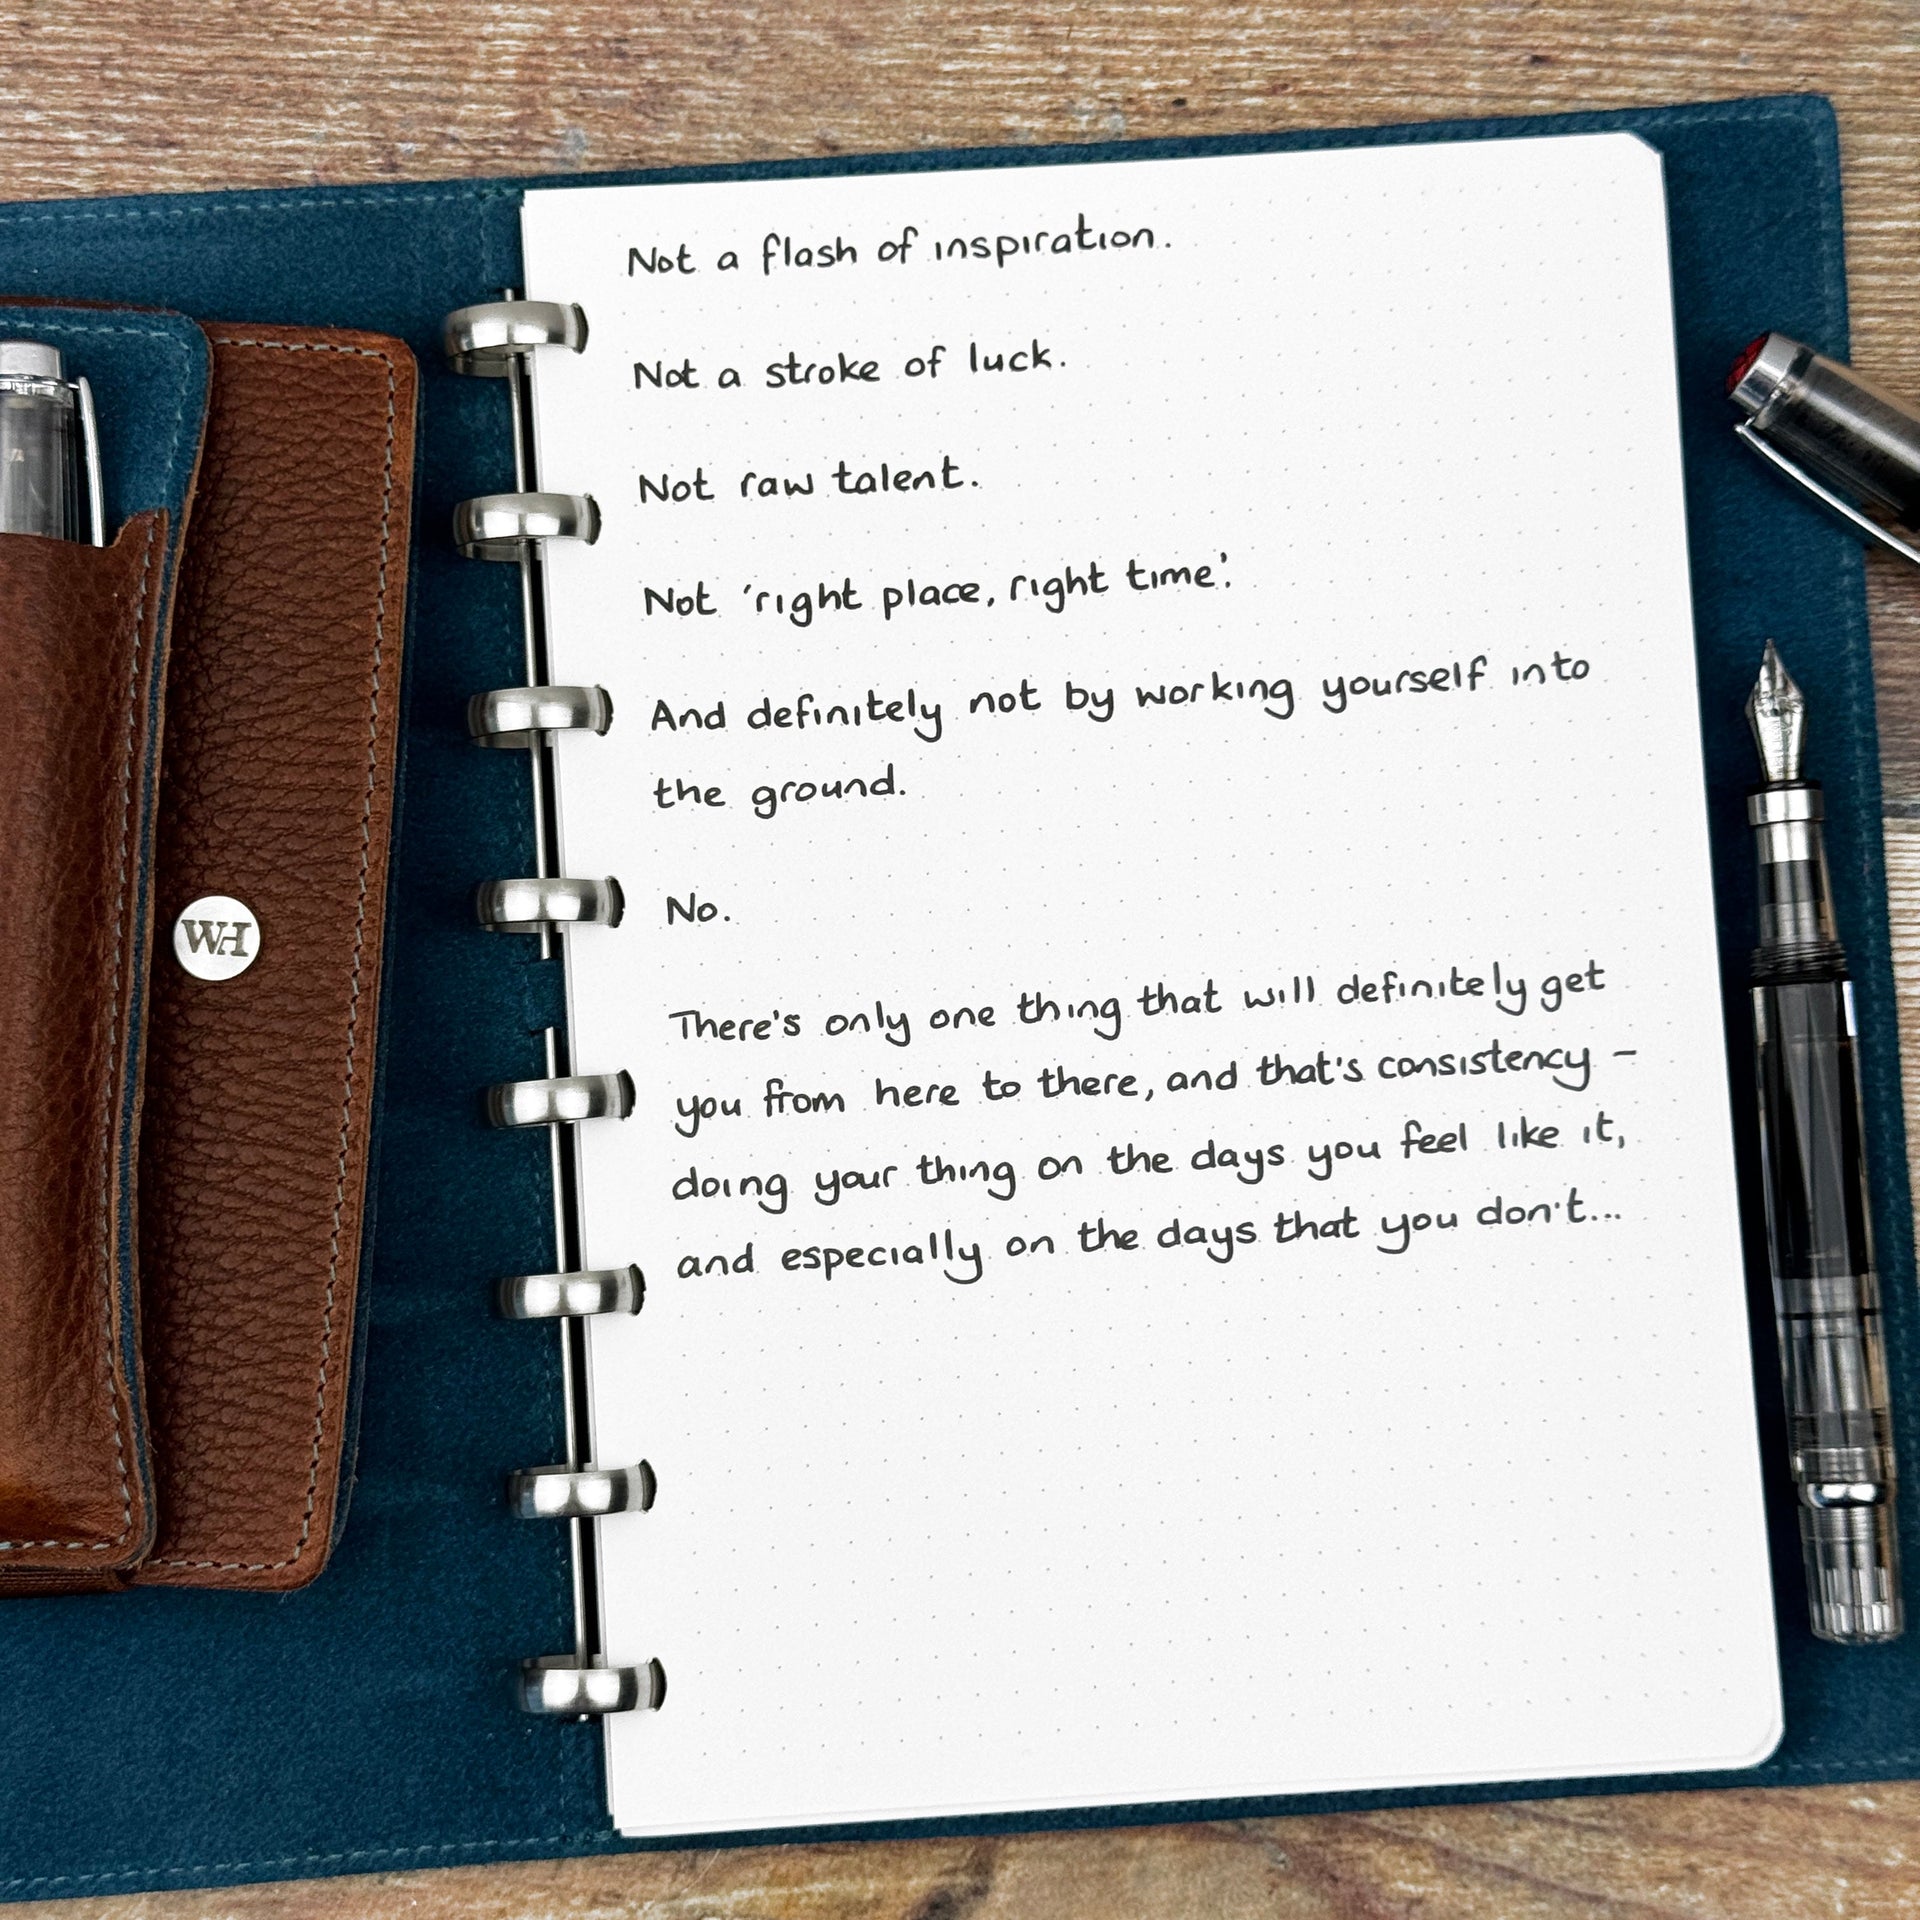 Not a flash of inspiration.
Not a stroke of luck.
Not raw talent.
Not 'right place, right time'.
And definitely not by working yourself into
the ground.
No.
There's only one thing that will definitely get
you from here to there, and that's consistency –
doing your thing on the days you feel like it,
and especially on the days that you don't...
WH